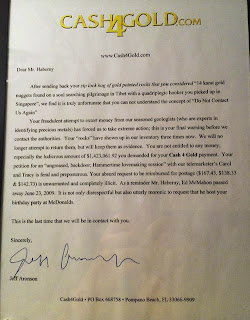 CASH4GOLD.COM
www.Cash4Gold.com
Dear Mr. Haberny
After sending back your zip lock bag of gold painted rocks that you considered "14 karat gold
nuggets found on a soul searching pilgrimage in Tibet with a quadriplegic hooker you picked up in
Singapore", we find it is truly unfortunate that you can not understand the concept of "Do Not Contact
Us Again"
Your fraudulent attempt to extort money from our seasoned geologists (who are experts in
identifying precious metals) has forced us to take extreme action; this is your final warning before we
contact the authorities. Your "rocks" have shown up in our inventory three times now. We will no
longer attempt to return them, but will keep them as evidence. You are not entitled to any money,
especially the ludicrous amount of $1,423,061.92 you demanded for your Cash 4 Gold payment. Your
petition for an "ungreased, backdoor, Hammertime lovemaking session" with our telemarketer's Carol
and Tracy is feral and preposterous. Your absurd request to be reimbursed for postage ($167.43, $138.33
& $142.73) is unwarranted and completely illicit. As a reminder Mr. Haberny, Ed McMahon passed
away June 23, 2009. It is not only disrespectful but also utterly moronic to request that he host your
birthday party at McDonalds.
This is the last time that we will be in contact with you.
Sincerely,
Jeff Aronson
Jeff Aronson
Cash4Gold • PO Box 668758 • Pompano Beach, FL 33066-9909